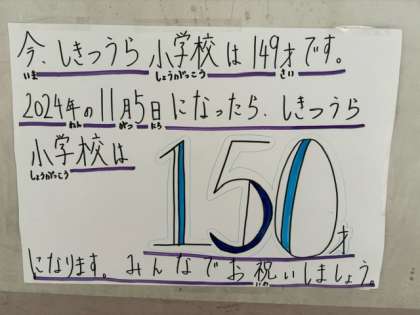 今、しきつうら小学校は149才です。
いま しょうがっこう さい
2024年の11月5日になったら、しきつうら
ねん がつ にち
小学校は 150才
しょうがっこう
になります。みんなでお祝いしましょう。
いわ